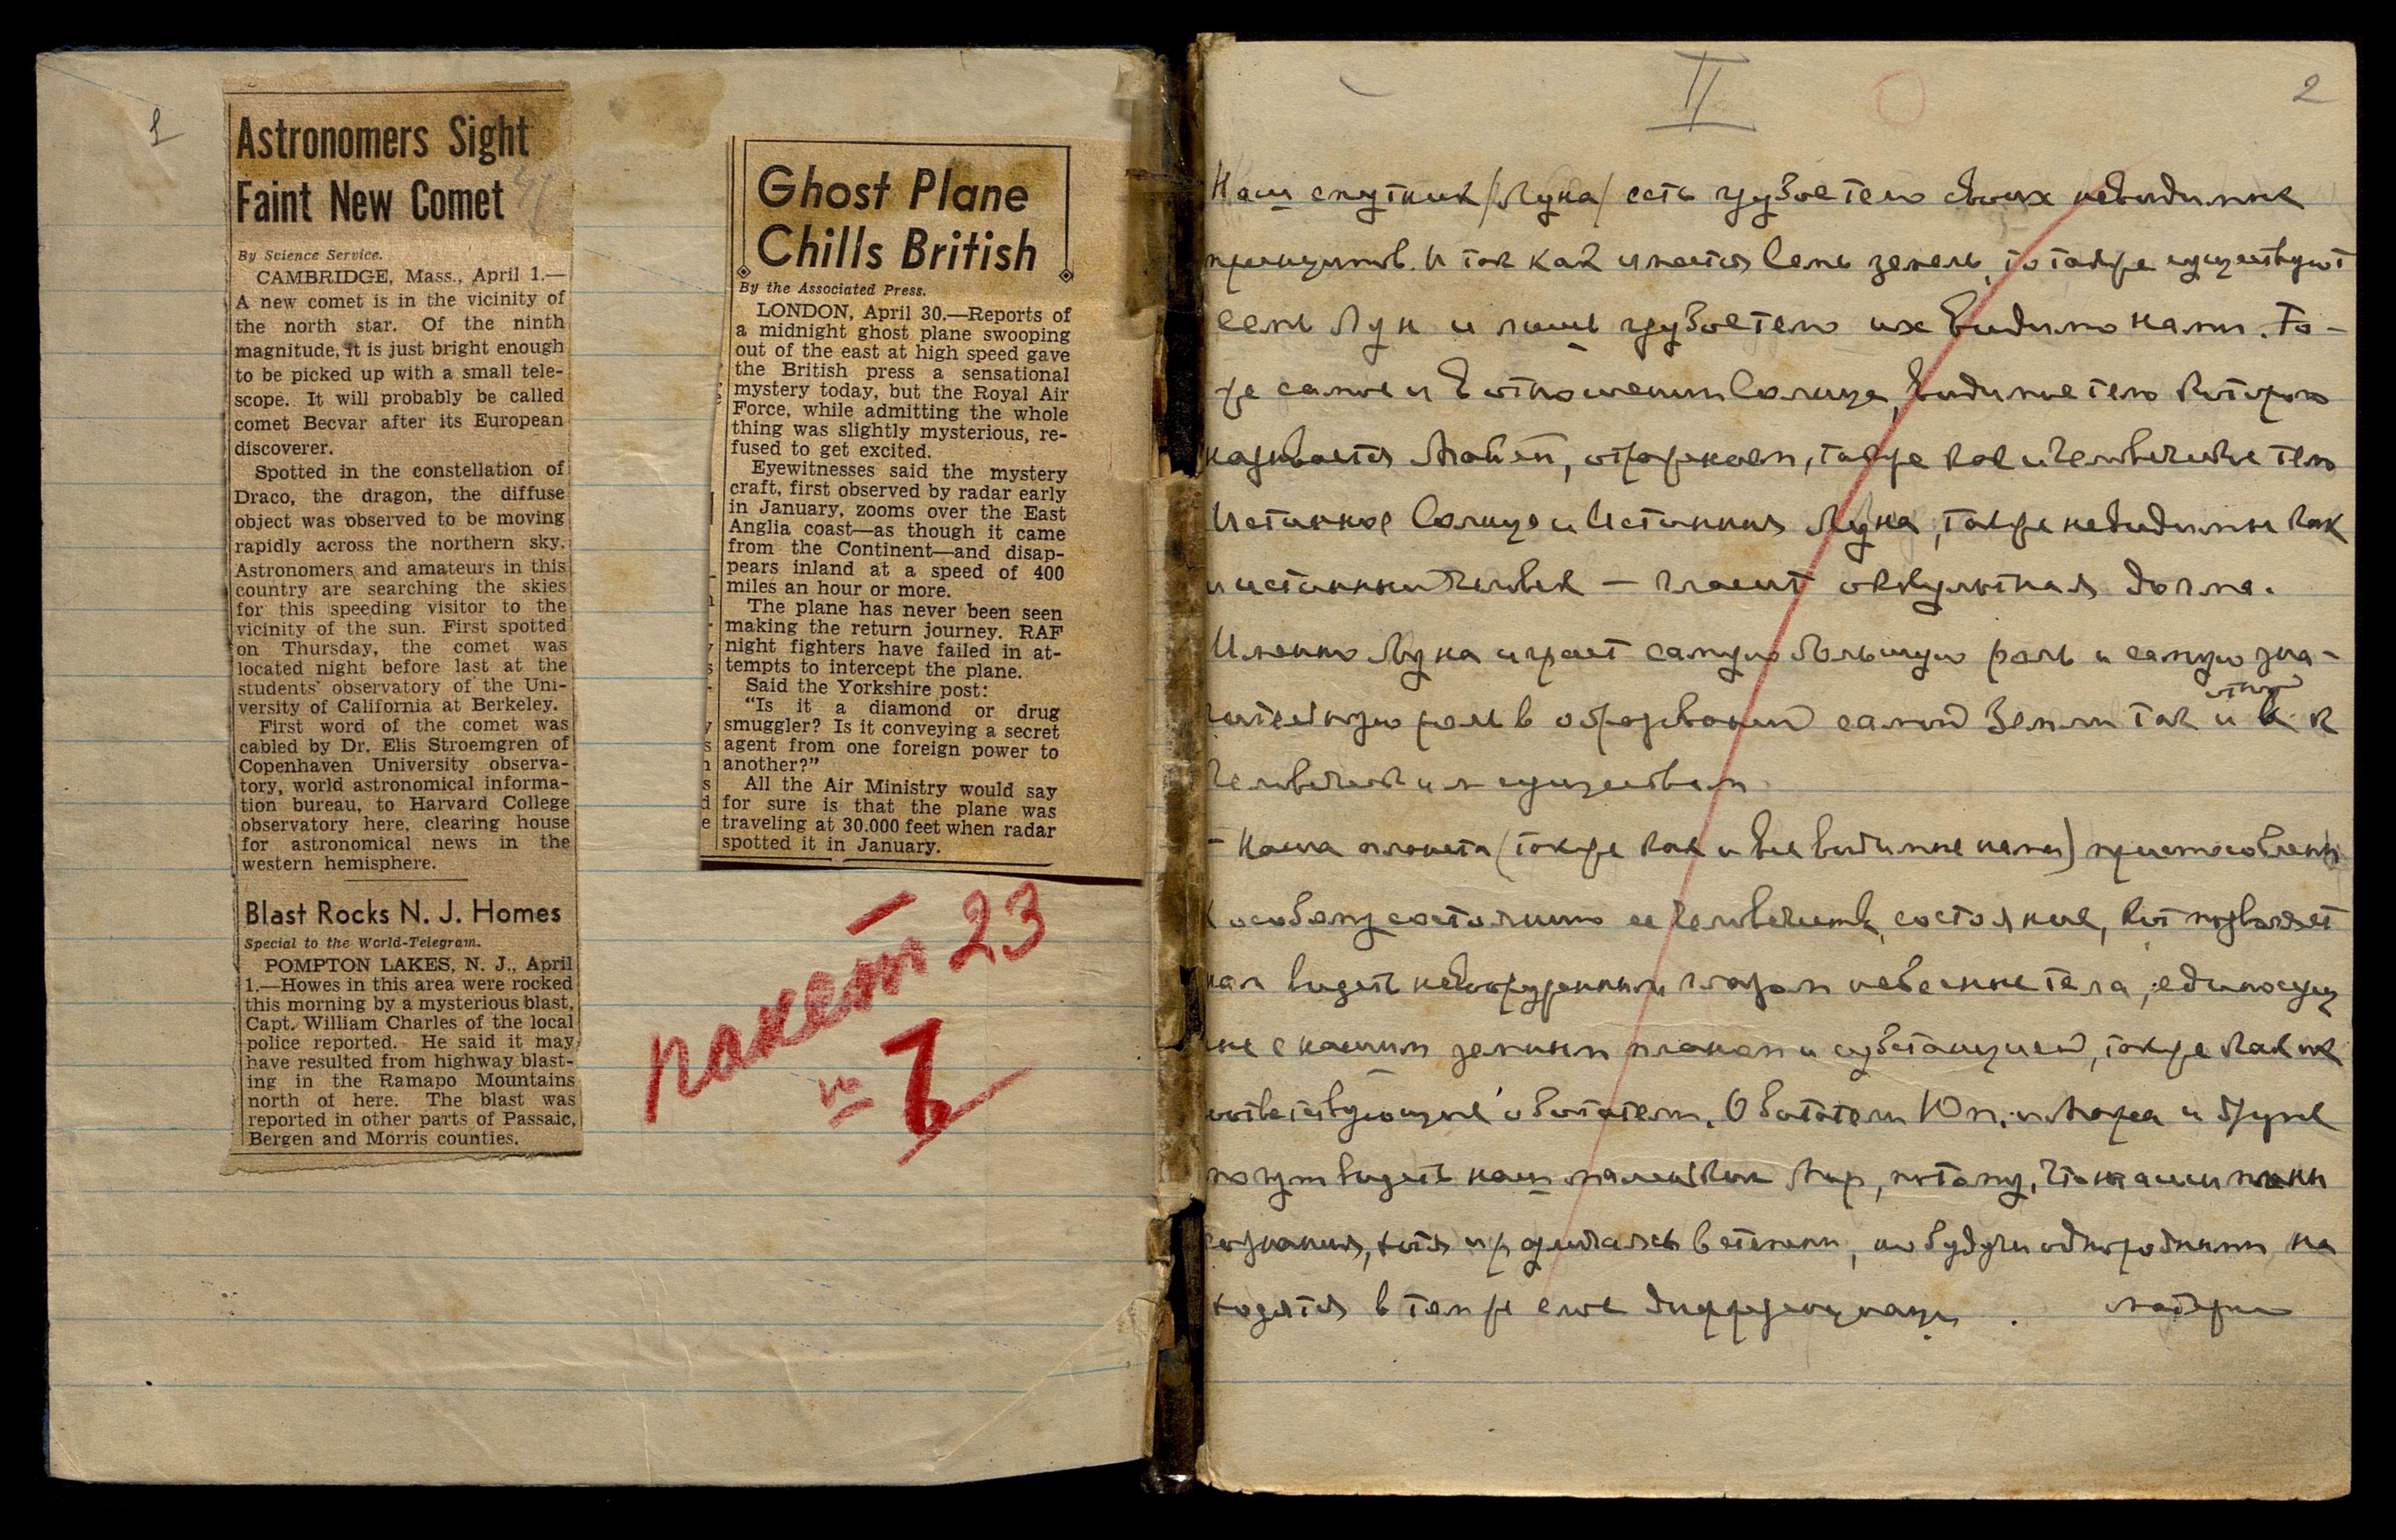 1
Astronomers Sight
Faint New Comet
By Science Service.
CAMBRIDGE, Mass., April 1.—
A new comet is in the vicinity of
the north star. Of the ninth
magnitude, it is just bright enough
to be picked up with a small tele-
scope. It will probably be called
comet Becvar after its European
discoverer.
Spotted in the constellation of
Draco, the dragon, the diffuse
object was observed to be moving
rapidly across the northern sky.
Astronomers and amateurs in this
country are searching the skies
for this speeding visitor to the
vicinity of the sun. First spotted
on Thursday, the comet was
located night before last at the
students' observatory of the Uni-
versity of California at Berkeley.
First word of the comet was
cabled by Dr. Elis Stroemgren of
Copenhaven University observa-
tory, world astronomical informa-
tion bureau, to Harvard College
observatory here, clearing house
for astronomical news in the
western hemisphere.
Blast Rocks N. J. Homes
Special to the World-Telegram.
POMPTON LAKES, N. J., April
1.—Howes in this area were rocked
this morning by a mysterious blast,
Capt. William Charles of the local
police reported. He said it may
have resulted from highway blast-
ing in the Ramapo Mountains
north of here. The blast was
reported in other parts of Passaic,
Bergen and Morris counties.
Ghost Plane
Chills British
By the Associated Press.
LONDON, April 30.—Reports of
a midnight ghost plane swooping
out of the east at high speed gave
the British press a sensational
mystery today, but the Royal Air
Force, while admitting the whole
thing was slightly mysterious, re-
fused to get excited.
Eyewitnesses said the mystery
craft, first observed by radar early
in January, zooms over the East
Anglia coast—as though it came
from the Continent—and disap-
pears inland at a speed of 400
miles an hour or more.
The plane has never been seen
making the return journey. RAF
night fighters have failed in at-
tempts to intercept the plane.
Said the Yorkshire post:
"Is it a diamond or drug
smuggler? Is it conveying a secret
agent from one foreign power to
another?"
All the Air Ministry would say
for sure is that the plane was
traveling at 30.000 feet when radar
spotted it in January.
пакет 23
II
2
Наш спутник /Луна/ есть грубое тело своих невидимых
принципов. И так как имеется Семь земель, то также существуют
семь Лун и лишь грубое тело их видимо нами. То-
же самое и в отношении Солнца, видимое тело которого
называется Майей, отражением, также как и человеческое тело
Истинное Солнце и Истинная Луна, также невидимы как
и истинный человек — гласит оккультная догма.
Именно Луна играет самую большую роль и самую зна-
чительную роль в образовании самой Земли так и к
человеческим существам
- Наша планета (также как и все видимые нами) приспособлена
к особому состоянию ее человечества, состояние, кот позволяет
нам видеть невооруженным глазом небесные тела, единосущ
ные с нашим земным планом и субстанцией, также как их
соответствующие обитатели. Обитатели Юп. и Марса и других
могут видеть наш маленький Мир, потому, что наши планы
сознания, хотя и различаясь в степени, но будучи однородными на
ходятся в том же слое дифференциации . материи